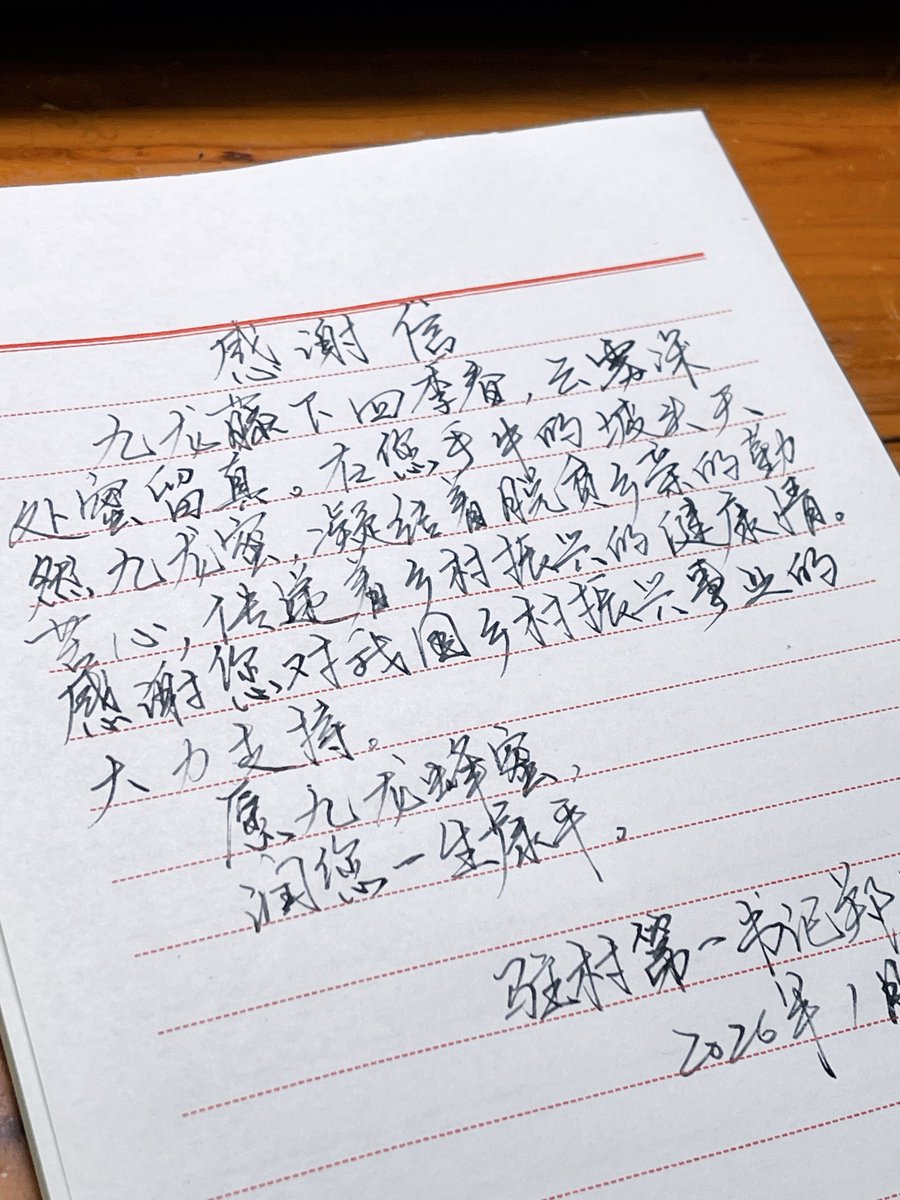 感谢信
九龙藤下四季春,云雾深
处蜜留真。在您手中的坡末天
然九龙蜜,凝结着脱贫乡亲的勤
苦心,传递着乡村振兴的健康情。
感谢您对我国乡村振兴事业的
大力支持。
愿九龙蜂蜜,
润您一生康平。
驻村第一书记郑
2026年1月